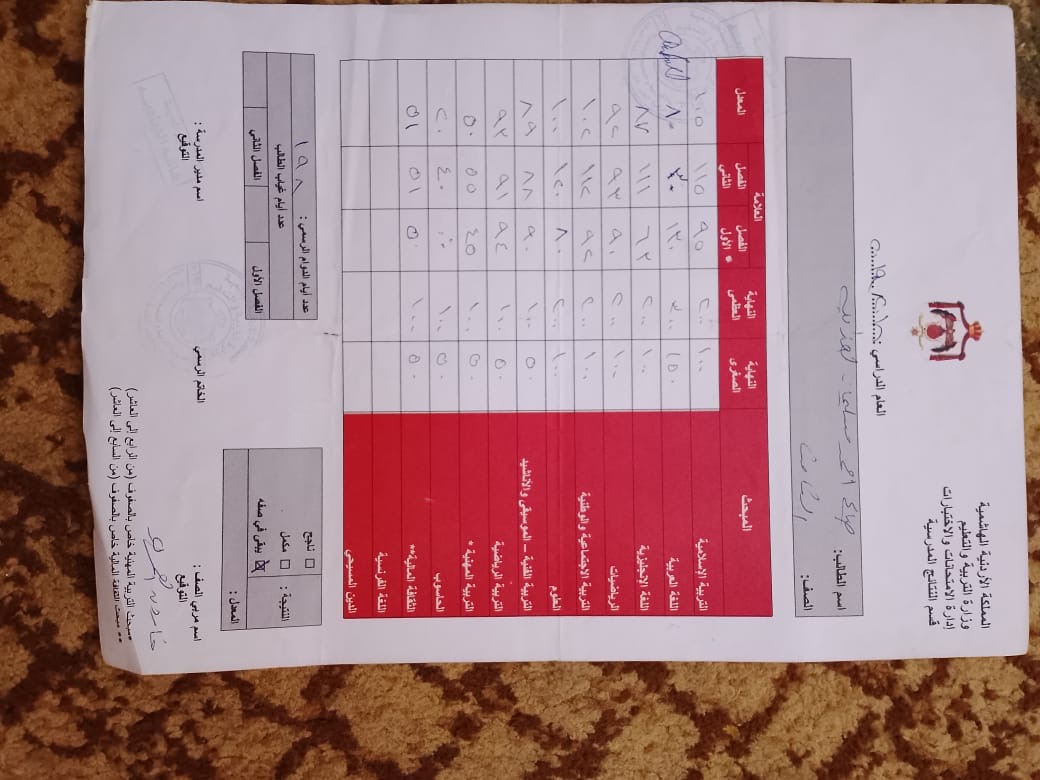 المملكة الأردنية الهاشمية
وزارة التربية والتعليم
إدارة الامتحانات والاختبارات
قسم النتائج المدرسية
العام الدراسي :
اسم الطالب:
الصف: الثامن
المبحث النهاية الصغرى النهاية العظمى العلامة
الفصل الأول * الفصل الثاني المعدل
التربية الإسلامية ١٠٠ ٢٠٠ ٩٥ ١١٥ ١٠٥
اللغة العربية ١٥٠ ٣٠٠ ١٣٠ ٣٠ ٨٠
اللغة الإنجليزية ١٠٠ ٢٠٠ ٦٣ ١١١ ٨٧
الرياضيات ١٠٠ ٢٠٠ ٩٠ ٩٣ ٩٢
التربية الاجتماعية والوطنية ١٠٠ ٢٠٠ ٩٢ ١١٢ ١٠٢
العلوم ١٠٠ ٢٠٠ ٨٠ ١٢٠ ١٠٠
التربية الفنية – الموسيقى والأناشيد ٥٠ ١٠٠ ٩٠ ٨٨ ٨٩
التربية الرياضية ٥٠ ١٠٠ ٩٤ ٩١ ٩٣
التربية المهنية * ٥٠ ١٠٠ ٤٥ ٥٥ ٥٠
الحاسوب ٥٠ ١٠٠ ٠٠ ٤٠ ٢٠
الثقافة المالية** ٥٠ ١٠٠ ٥٠ ٥١ ٥١
اللغة الفرنسية
الدين المسيحي
النتيجة : ناجح مكمل يبقى في صفه
المعدل :
عدد أيام الدوام الرسمي : ١٩٨
عدد أيام غياب الطالب
الفصل الأول الفصل الثاني
اسم مربي الصف : الخاتم الرسمي اسم مدير المدرسة :
التوقيع التوقيع
*مبحث التربية المهنية خاص بالصفوف (من الرابع إلى العاشر)
** مبحث الثقافة المالية خاص بالصفوف (من السابع إلى العاشر)